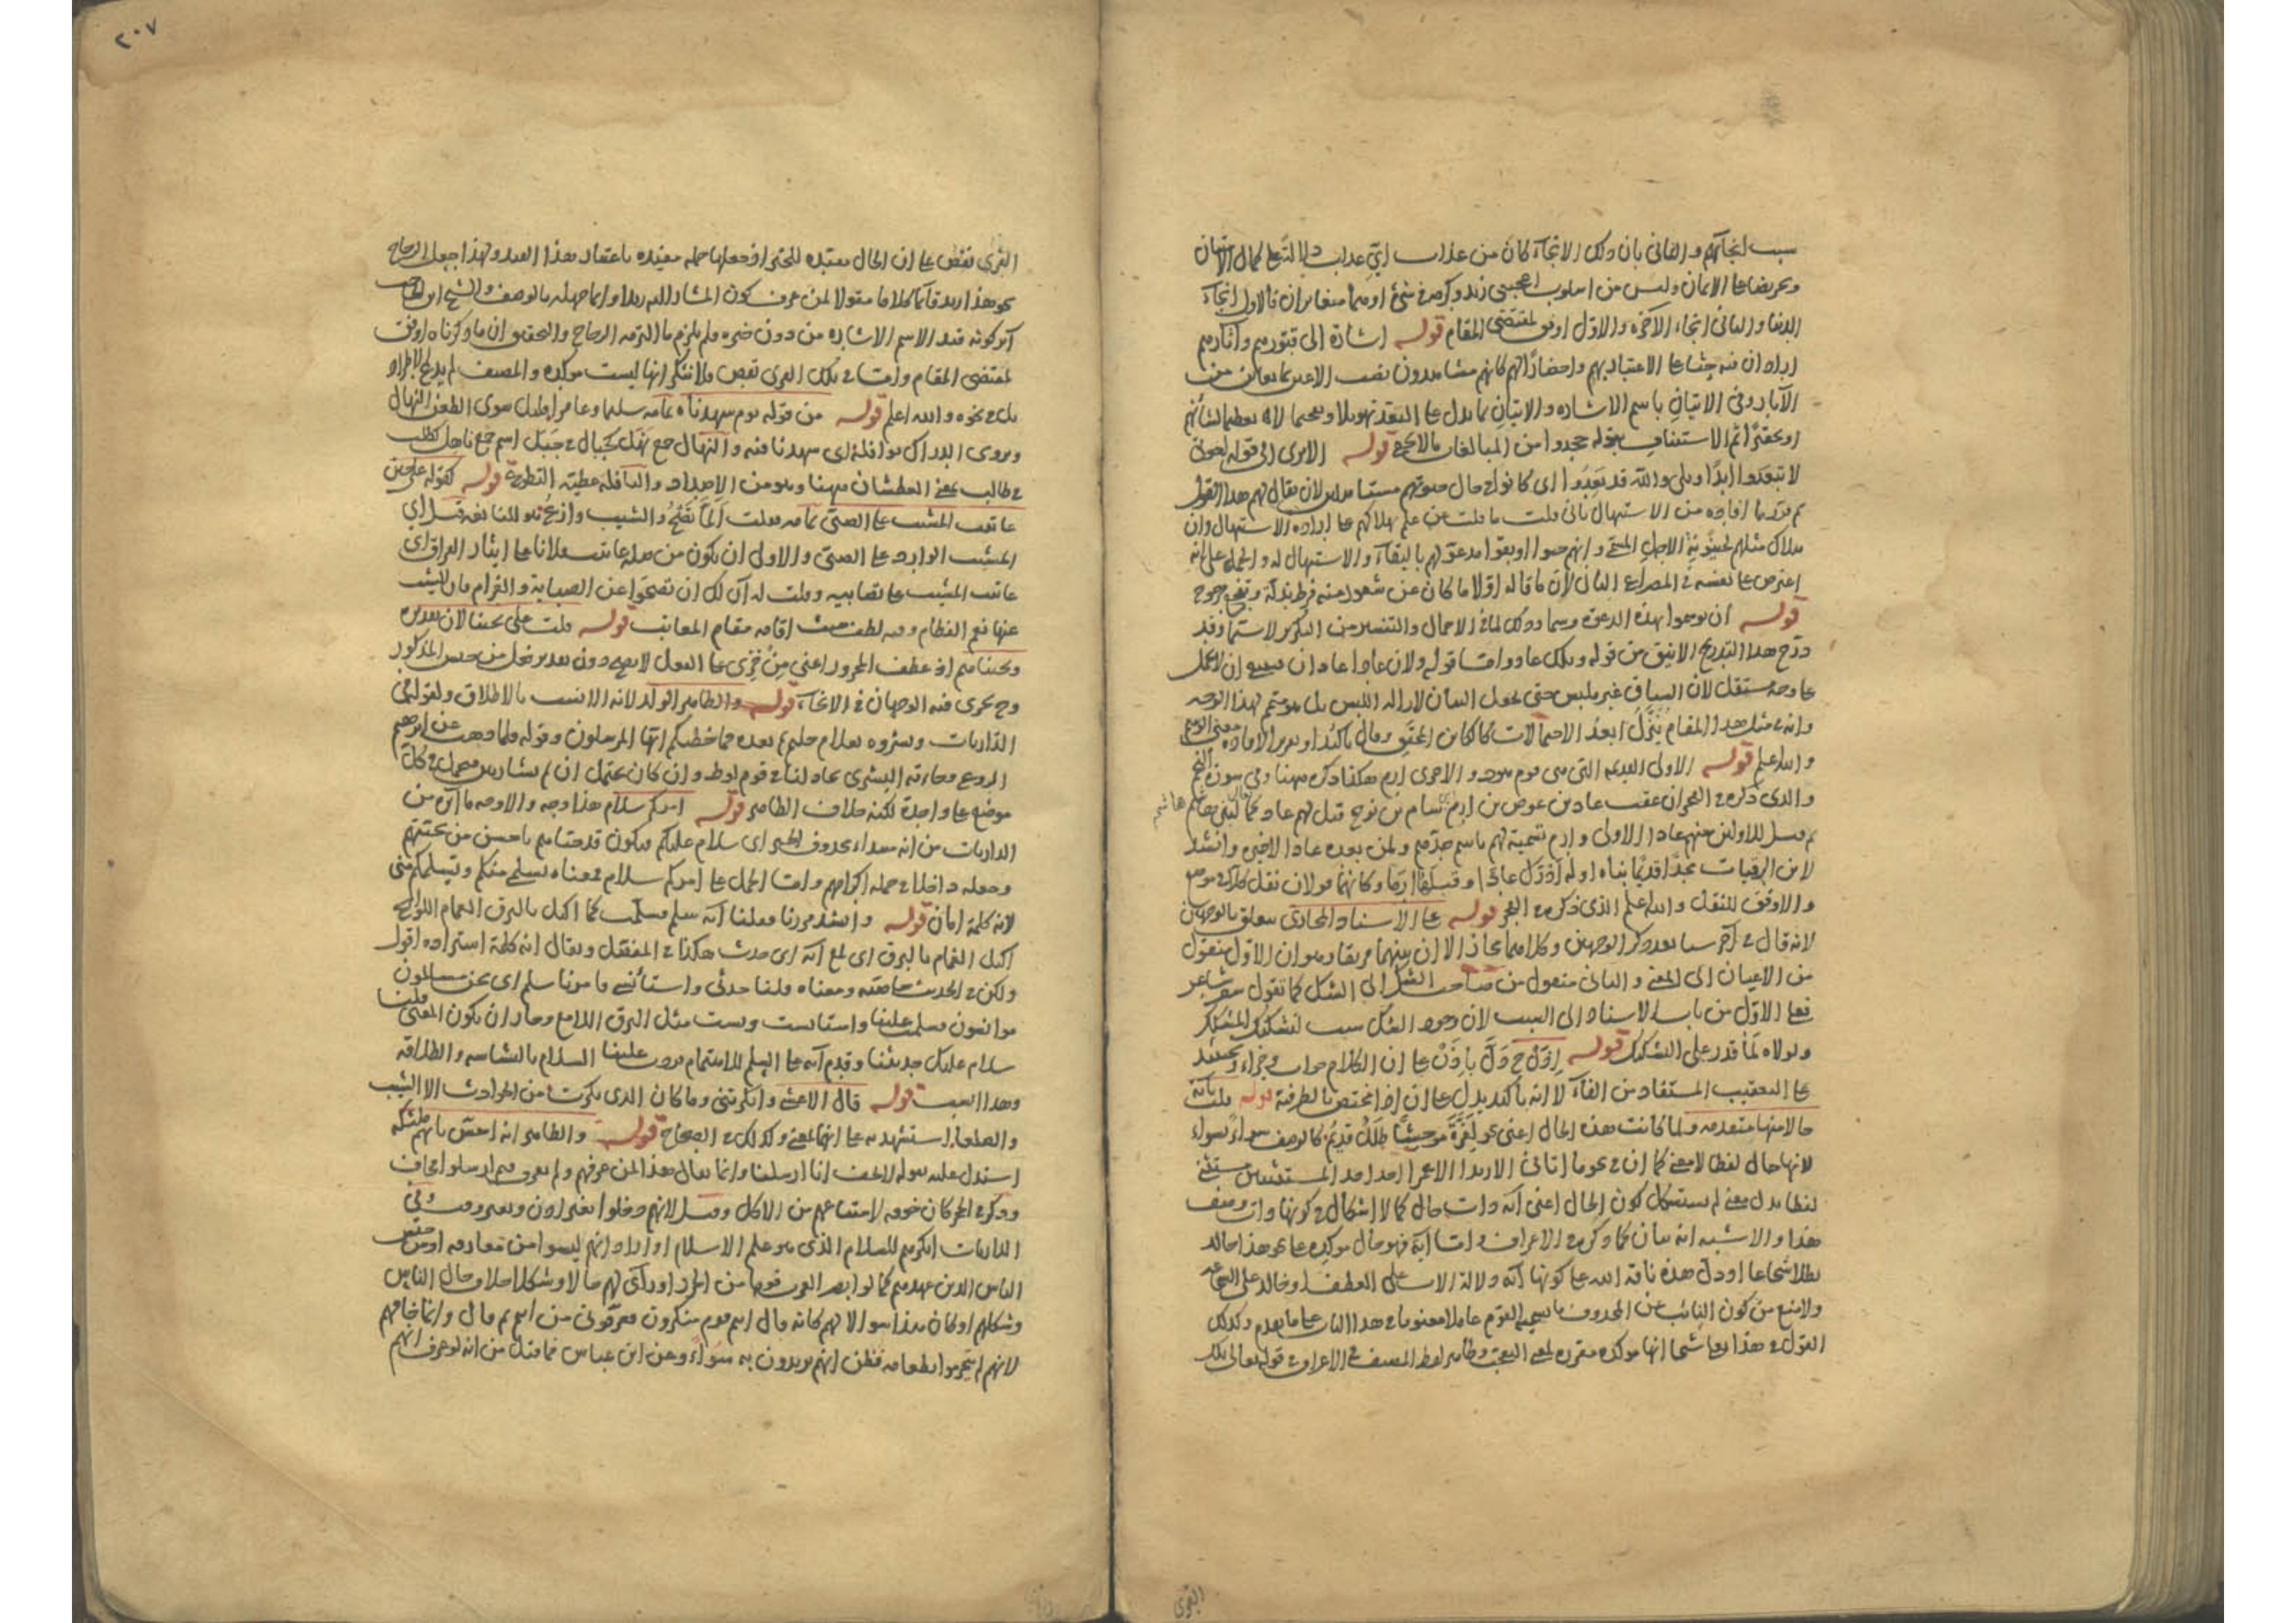 سبب انجائهم والثاني بان ذلك الانجاء كان من عذاب اي عذاب دلالة على كمال الامتنان
وتحريضا على الايمان وليس من اسلوب اعجبني زيد وكرمه في شيء اوهما متغايران فالاول انجاء
الدنيا والثاني انجاء الاخرة والاول اوفق لمقتضى المقام قوله اشارة الى قبورهم واثارهم
اراد ان فيه حثا على الاعتبار بهم واحضارا لهم كانهم مشاهدون نصب الاعين بما يعاين من
الاثار وفي الاتيان باسم الاشارة والاتيان بما يدل على البعد تهويلا وتفخيما لا تعظيما لشأنهم
او تحقيرا ثم الاستئناف بقوله جحدوا من المبالغات ما لا يخفى قوله الا ترى الى قوله اخوتي
لا تبعدوا ابدا وبلى والله قد بعدوا اي كانوا في حال حيوتهم مستأهلين لان يقال لهم هذا القول
ثم قرر ما افاده من الاستيهال بان قلت ما قلت عن علم بهلاكهم على ارادة الاستيهال وان
هلاك مثلهم
اعترض على نفسه في المصراع الثاني لان ما قاله اولا ما كان عن شعور منه
قوله ان يوسموا بهذه الدعوة وسما وذلك لما في الاجمال والتفسير من التكرير لا سيما وقد
درج هذا التدريج الانيق من قوله وتلك عاد واما قوله ولان عادا عادان
على وجه مستقل لان السياق غير ملبس حتى يجعل البيان لازالة اللبس بل هو متمم لهذا الوجه
وانه في مثل هذا المقام ينزل ابعد الاحتمالات كالكائن المحقق وقال تاكيدا وتقريرا لافادة معنى الوسم
والله اعلم قوله الاولى القديمة التي هي قوم هود والاخرى ارم هكذا ذكره هيهنا وفي سورة النجم
والذي ذكره في الفجر ان عقب عاد بن عوص بن ارم بن سام بن نوح قيل لهم عاد كما يقال لبني هاشم هاشم
ثم قيل للاولين منهم عادا الاولى وارم تسمية لهم باسم جدهم ولمن بعدهم عادا الاخيرة وانشد
لابن الرقيات مجدا قديما بناه اوله ادرك عادا وقبلها ارما وكانهما قولان نقل كلا في موضع
والاوفق للنقل والله اعلم الذي ذكره في الفجر قوله على الاسناد المجازي يتعلق بالوجهين
لانه قال في اخر سبا بعد ذكر الوجهين وكلاهما مجاز الا ان بينهما فريقا وهو ان الاول منقول
من الاعيان الى المعنى والثاني منقول من صاحب الشك الى الشك كما تقول شعر شاعر
فعلى الاول من باب الاسناد الى السبب لان وجود الشك سبب لتشكيك المشكك
ولولاه لما قدر على التشكيك قوله اذن ح دل باذن على ان الكلام جواب وجزاء وحينئذ
على التعقيب المستفاد من الفاء لا انه تاكيد يدل على ان اذا مختص بالظرفية قوله قلت بآية
حالا منها متقدمة ولما كانت هذه الحال اعني نحو لعزة موحشا طلل قديم كالوصف سواء بسواء
لانها حال لفظا لا معنى كما ان في نحو ما اتاني الا زيدا الا عمرا احد احد المستثنيين مستثنى
لفظا بدل معنى لم يستشكل كون الحال اعني اية ذات حال كما لا اشكال في كونها ذات وصف
هذا والاشبه انه بيان كما ذكره في الاعراف واما اية فهو حال مؤكدة على نحو هذا خالد
بطلا شجاعا او دل هذه ناقة الله على كونها اية دلالة الاسد على العطف او خالد على الشجاعة
ولا منع من كون النائب عن المحذوف عاملا معنويا في هذا الباب على ما تقدم وكذلك
القول في هذا بعلي شيخا انها مؤكدة مقررة وظاهر لفظ المصنف في الاعراف في قوله تعالى تلك
القرى
٢٠٧
القرى نقص على ان الحال مقيدة للخبر او جعلها جملة مفيدة باعتبار هذا القيد ولهذا جعل الزجاج
نحو هذا زيد قائما كلاما مقولا لمن عرف كون المشار اليه زيدا وانما جهله بالوصف والشيخ ابن الحاجب
اثر كونه قيد الاسم الاشارة من دون خبره ولم يلزم ما التزمه الزجاج والتحقيق ان ما ذكرناه اوفق
لمقتضى المقام واما في تلك القرى نقص فلا ننكر انها ليست مؤكدة والمصنف لم يدع الاطراد
بل في نحوه والله اعلم قوله من قوله يوم شهدناه تمامه سليما وعامرا قليل سوى الطعن النهال
ويروى الدراك نوافله اي شهدنا فيه والنهال جمع نهل كجبال في جبل اسم جمع ناهل كطلب
في طالب بمعنى العطشان هيهنا وهو من الاضداد والنافلة عطية التطوع قوله كقوله على حين
عاتبت المشيب على الصبى تمامه وقلت الما تصح والشيب وازع هو للنابغة قيل اي
المشيب الوارد على الصبى والاول ان يكون من صلة عاتبت
عاتبت المشيب على تصابيه وقلت له ان لك ان تصحوا عن الصبابة والغرام فان الشيب
عنها نعم الفطام وفيه لطف حيث اقامه مقام المعاتب قوله قلت على نجينا لان تقديره
ونجيناهم اذ عطف المجرور اعني من خزي على الفعل لا يصح دون تقدير فعل من جنس المذكور
وح يجري فيه الوجهان في الانجاء قوله والظاهر الولد لانه الانسب بالاطلاق ولقوله في
الذاريات وبشروه بغلام حليم ثم بعده فما خطبكم ايها المرسلون وقوله فلما ذهب عن ابرهيم
الروع وجاءته البشرى يجادلنا في قوم لوط وان كان يحتمل ان ثم بشارتين فيحمل في كل
موضع على واحدة لكنه خلاف الظاهر قوله امركم سلام هذا وجه والاوجه ما اثره من
الذاريات من انه مبتداء محذوف الخبر اي سلام عليكم ويكون قد حياهم باحسن من تحيتهم
وجعله داخلا في جملة اكرامهم واما الحمل على امركم سلام فمعناه تسليمي منكم وتسليمكم مني
لانه كلمة امان قوله وانشد مررنا فقلنا ايه سلم فسلمت كما اكتل بالبرق الغمام اللوائح
اكتل الغمام بالبرق اي لمع ايه اي حدث هكذا في المفصل ويقال انه كلمة استزادة اقول
ولكن في الحديث خاصة ومعناه قلنا حدثي واستأنسي فامرنا سلم اي نحن مسالمون
موانسون فسلمت علينا واستانست وبشت مثل البرق اللامع وجاز ان يكون المعنى قلنا
سلام عليك حدثينا وقدم ايه على السلم للاهتمام فردت علينا السلام بالبشاشة والطلاقة
وهذا انسب قوله قال الاعشى وانكرتني وما كان الذي نكرت من الحوادث الا الشيب
والصلعا استشهد به على انهما بمعنى وكذلك في الصحاح قوله والظاهر انه احس بانهم ملئكة
استدل عليه بقوله لا تخف انا ارسلنا وانما يقال هذا لمن عرفهم ولم يعرف فيم ارسلوا فخاف
وذكر في الحجر كان خوفه لامتناعهم من الاكل وقيل لانهم دخلوا بغير اذن وبغير وقت وفي
الذاريات انكرهم للسلام الذي هو علم الاسلام او اراد انهم ليسوا من معارفه او من جنس
الناس الذين عهدهم كما لو ابصر العرب قوما من الخزر او راى لهم حالا وشكلا خلاف حال الناس
وشكلهم او كان هذا سؤالا لهم كانه قال انتم قوم منكرون فعرفوني من انتم ثم قال وانما خافهم
لانهم لم يتحرموا بطعامه فظن انهم يريدون به سوءا وعن ابن عباس فما قيل من انه لو عرف انهم